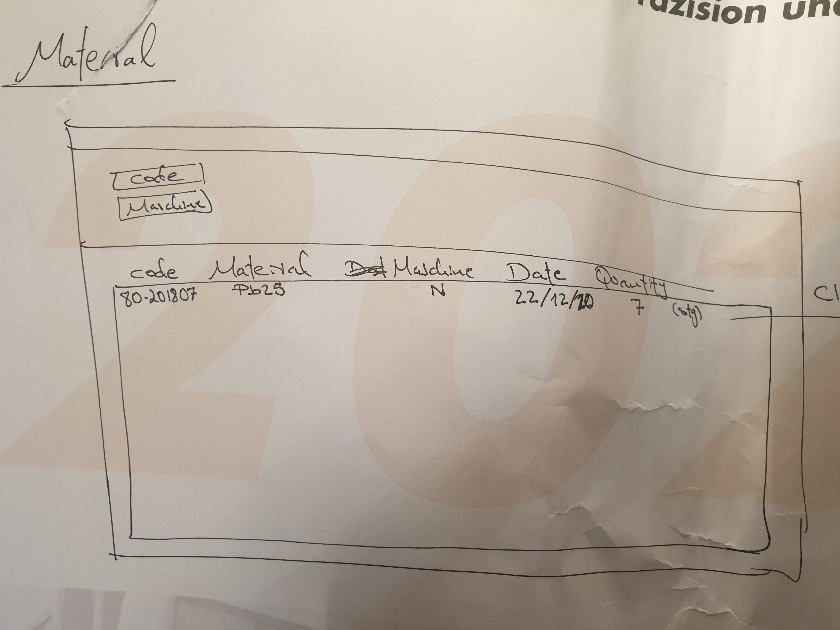 räzision und
Material
code
Maschine
code Material Maschine Date Quantity
80-201807 Pb25 N 22/12/20 7 (stg)
202